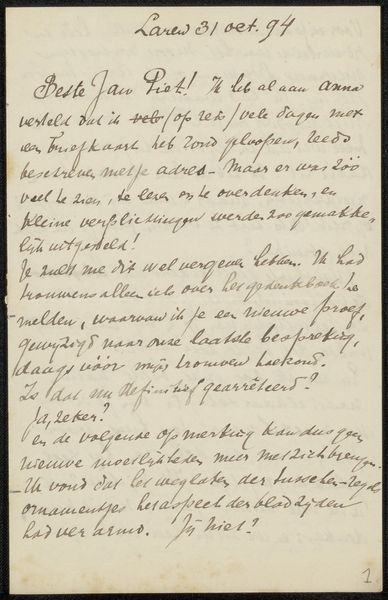 Laren 31 oct. 94
Beste Jan Piet! Ik heb al aan Anna
verteld dat ik (op reis) vele dagen met
een briefkaart heb rond geloopen, reeds
beschreven met je adres. Maar er was zóó
veel te zien, te leven en te overdenken, en
kleine verplichtingen werden zoo gemakke-
lijk uitgesteld!
Je zult me dit wel vergeven hebben. Ik had
trouwens alleen iets over het gedenkboek te
melden, waarvan ik je een nieuwe proef,
gewijzigd naar onze laatste bespreking,
daags vóór mijn trouwen toezond.
Is dat nu definitief gearrêteerd?
Ja, zeker?
en de volgende opmerking kan dus geen
nieuwe moeilijkheden meer met zich brengen.
Ik vond dat het weglaten der tusschen-regel
ornamentjes het aspect der bladzijden
had verarmd. Jij niet?
1